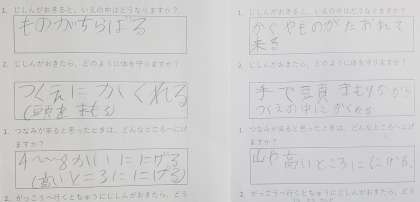 1. じしんがおきると、いえの中はどうなりますか？
ものがちらばる
2. じしんがおきたら、どのように体を守りますか？
つくえに かくれる
(頭を まもる)
3. つなみが来ると思ったときは、どんなところへにげ
ますか？
4〜8かいに にげる
(高いところににげる)
2. がっこうへ行くとちゅうにじしんがおきたら、どう
1. じしんがおきると、いえの中はどうなりますか？
かぐやものが たおれて
来る
2. じしんがおきたら、どのように体を守りますか？
手で 頭 まもりながら
つくえの中に かくれる
1. つなみが来ると思ったときは、どんなところへにげ
ますか？
山や 高いところに にげる。
2. がっこうへ行くとちゅうにじしんがおきたら、どう